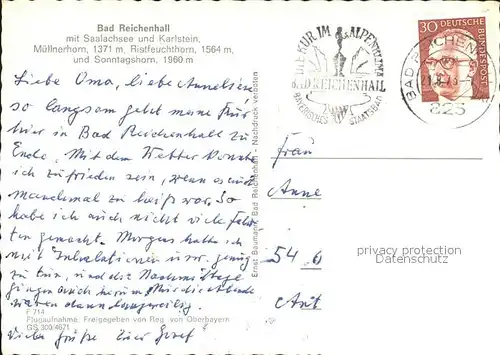 Bad Reichenhall
mit Saalachsee und Karlstein,
Müllnerhorn, 1371 m, Ristfeuchthorn, 1564 m,
und Sonntagshorn, 1960 m
Liebe Oma, liebe Annelise
so langsam geht meine Kur
hier in Bad Reichenhall zu
Ende. Mit dem Wetter konnte
ich zufrieden sein, wenn es auch
manchmal zu heiß war. So
habe ich auch nicht viele Fahr-
ten gemacht. Morgens hatte ich
mit Inhalationen usw. genug
zu tun, und die Nachmittage
gingen auch herum. Nur die Abende
waren dann langweilig.
F 714
Flugaufnahme: Freigegeben von Reg. von Oberbayern
GS 300/4671
Viele Grüße Euer Josef
Ernst Baumann, Bad Reichenhall - Nachdruck verboten
DIE KUR IM ALPENKLIMA
BAD REICHENHALL
BAYERISCHES STAATSBAD
30 DEUTSCHE BUNDESPOST
BAD REICHENHALL
Frau
Anne
54
privacy protection
Datenschutz
Amt